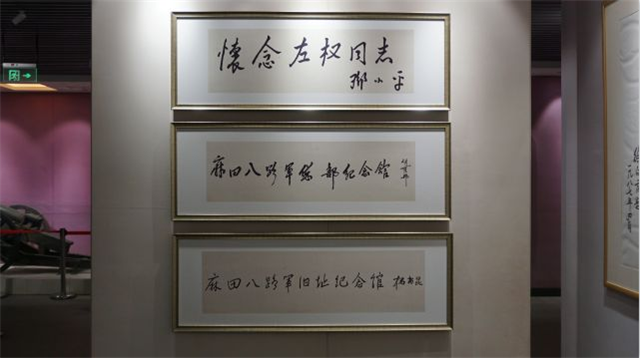 懷念左权同志
邓小平
麻田八路军总部纪念馆
麻田八路军旧址纪念馆 杨尚昆
一九八七年